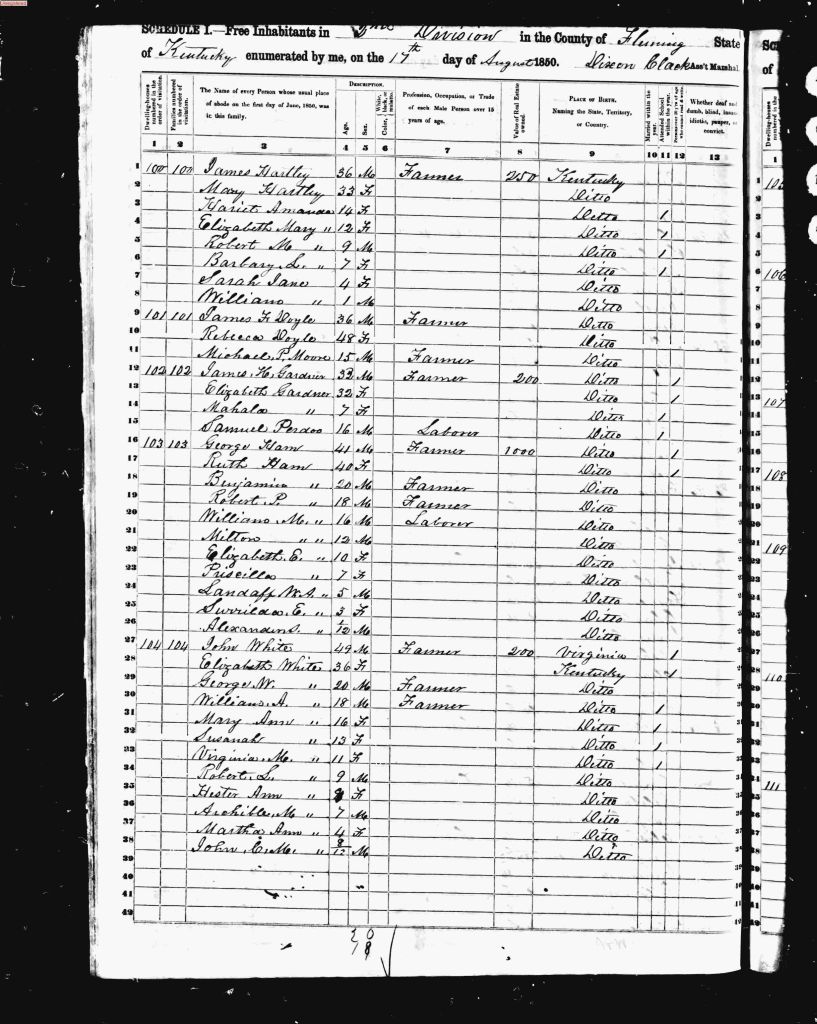 SCHEDULE I.—Free Inhabitants in 2nd Division in the County of Fleming State
of Kentucky enumerated by me, on the 17th day of August 1850. Dixon Clack Ass't Marshal.
Dwelling-houses numbered in the order of visitation. Families numbered in the order of visitation. The Name of every Person whose usual place of abode on the first day of June, 1850, was in this family. DESCRIPTION. Age. Sex. Color, White, black, or mulatto. Profession, Occupation, or Trade of each Male Person over 15 years of age. Value of Real Estate owned. PLACE OF BIRTH. Naming the State, Territory, or Country. Married within the year. Attended School within the year. Whether deaf and dumb, blind, insane, idiotic, pauper, or convict.
1 2 3 4 5 6 7 8 9 10 11 12 13
1 100 100 James Hartley 36 M Farmer 250 Kentucky
2 Mary Hartley 33 F Ditto
3 Hariet Amanda 14 F Ditto 1
4 Elizabeth Mary " 12 F Ditto 1
5 Robert M " 9 M Ditto 1
6 Barbary L. " 7 F Ditto 1
7 Sarah Jane 4 F Ditto
8 William " 1 M Ditto
9 101 101 James F Doyle 36 M Farmer Ditto
10 Rebecca Doyle 48 F Ditto
11 Michael P. Moore 15 M Farmer Ditto
12 102 102 James H. Gardner 33 M Farmer 200 Ditto 1
13 Elizabeth Gardner 32 F Ditto 1
14 Mahala " 7 F Ditto 1
15 Samuel Perdoo 16 M Laborer Ditto 1
16 103 103 George Ham 41 M Farmer 1000 Ditto 1
17 Ruth Ham 40 F Ditto 1
18 Benjamin " 20 M Farmer Ditto
19 Robert P. " 18 M Farmer Ditto
20 William M. " 16 M Laborer Ditto
21 Milton " " 12 M Ditto
22 Elizabeth E. " 10 F Ditto
23 Priscilla " 7 F Ditto
24 Landaff W.S. " 5 M Ditto
25 E. " 3 F Ditto
26 Alexander S. " /12 M Ditto
27 104 104 John White 49 M Farmer 200 Virginia 1
28 Elizabeth White 36 F Kentucky 1
29 George W. " 20 M Farmer Ditto
30 William A. " 18 M Farmer Ditto 1
31 Mary Ann " 16 F Ditto 1
32 Susanah " 13 F Ditto 1
33 Virginia M. " 11 F Ditto 1
34 Robert L. " 9 M Ditto
35 Hester Ann " F Ditto
36 Archible M " 7 M Ditto
37 Martha Ann " 4 F Ditto
38 John C. M. " 8/12 M Ditto
39
40
41
42
105
106
107
108
109
110
111